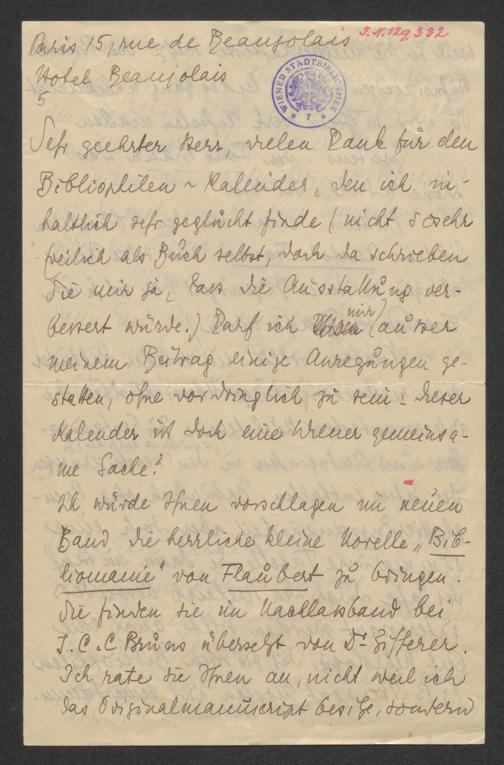 J.N.129332
Paris 15, rue de Beaujolais
Hotel Beaujolais
5
WIENER STADTBIBLIOTHEK
* 7 *
Sehr geehrter Herr, vielen Dank für den
Bibliophilen-Kalender, den ich in-
haltlich sehr geglückt finde (nicht so sehr
freilich als Buch selbst, doch da schrieben
Sie mir ja, dass die Ausstattung ver-
bessert würde.) Darf ich mir (ausser
meinem Beitrag einige Anregungen ge-
statten, ohne vordringlich zu sein: dieser
Kalender ist doch eine Wiener gemeinsa-
me Sache?
Ich würde Ihnen vorschlagen im neuen
Band die herrliche kleine Novelle „Bib-
liomanie" von Flaubert zu bringen.
Sie finden sie im Nachlassband bei
J.C.C Bruns übersetzt von Dr Zifferer.
Ich rate sie Ihnen an, nicht weil ich
das Originalmanuscript besitze, sondern